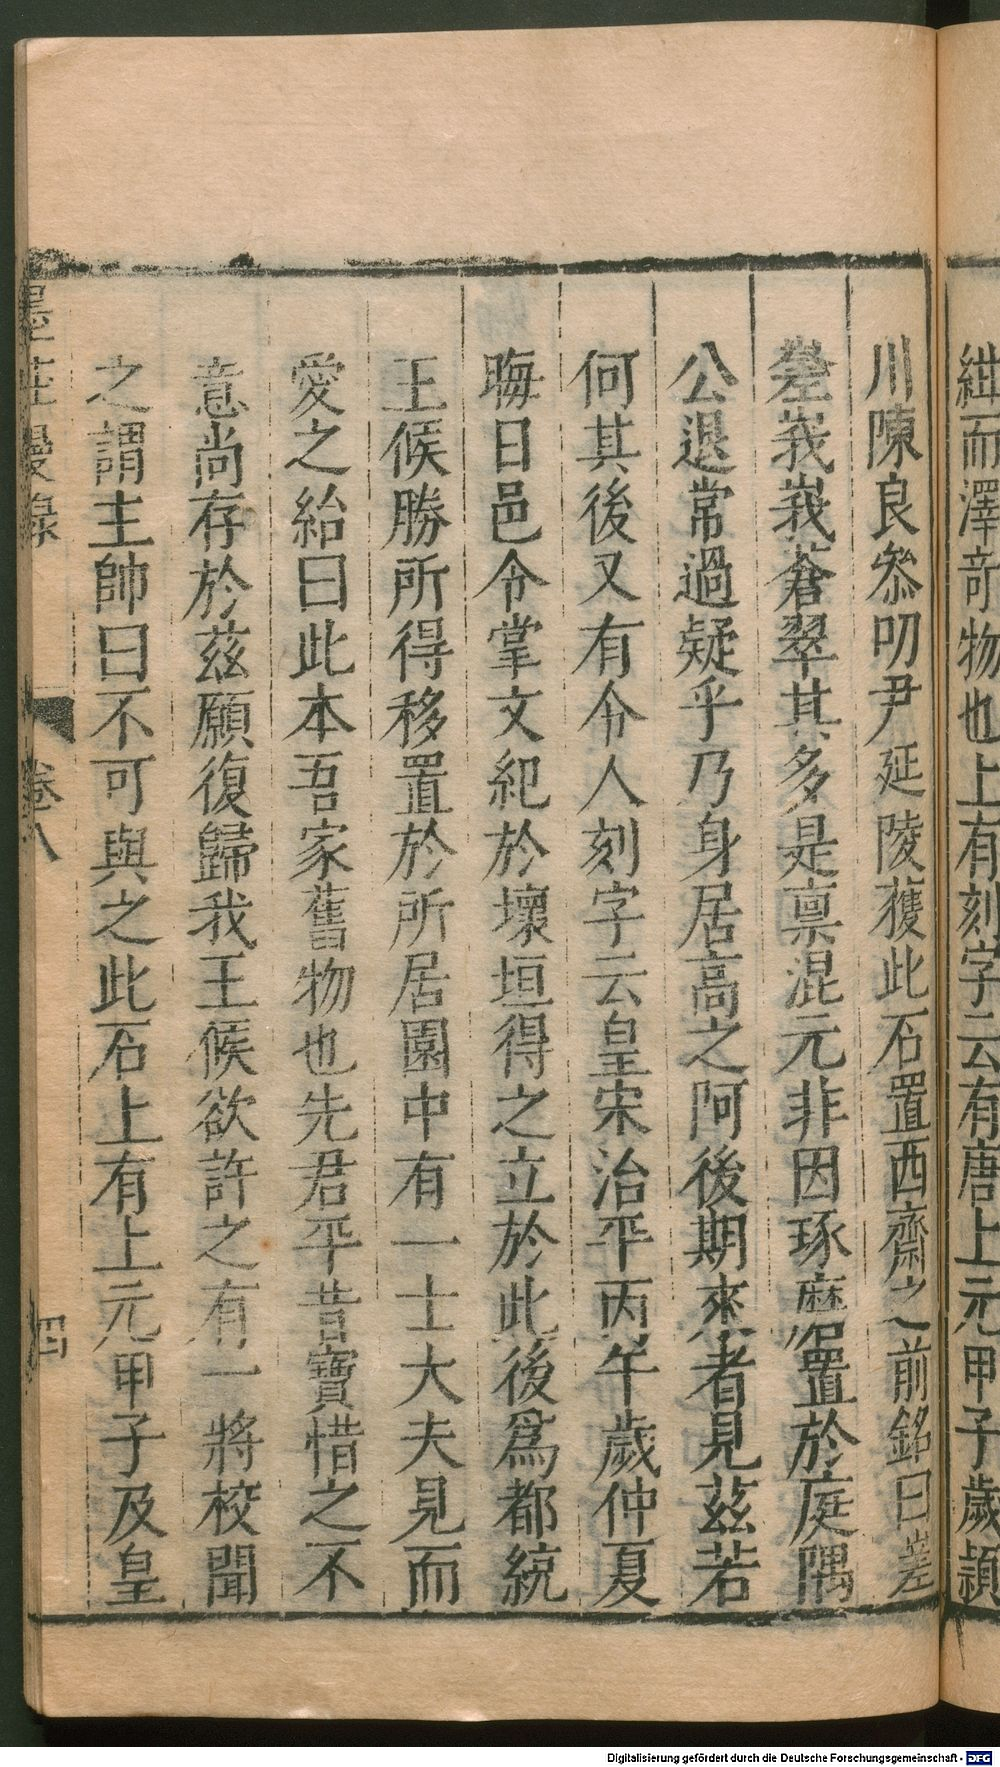 紺而澤竒物也上有刻字云有唐上元甲子歲潁
川陳良叅叨尹延陵獲此石置西齋之前銘曰嵳
嵳峩峩蒼翠其多是禀混元非因琢磨置於庭隅
公退常過疑乎乃身居高之阿後期來者見茲若
何其後又有令人刻字云皇宋治平丙午歲仲夏
晦日邑令掌文紀於壞垣得之立於此後爲都統
王候勝所得移置於所居園中有一士大夫見而
愛之紿曰此本吾家舊物也先君平昔寶惜之不
意尚存於茲願復歸我王候欲許之有一將校聞
之謂主帥曰不可與之此石上有上元甲子及皇
墨莊漫錄 卷八 四
Digitalisierung gefördert durch die Deutsche Forschungsgemeinschaft - DFG